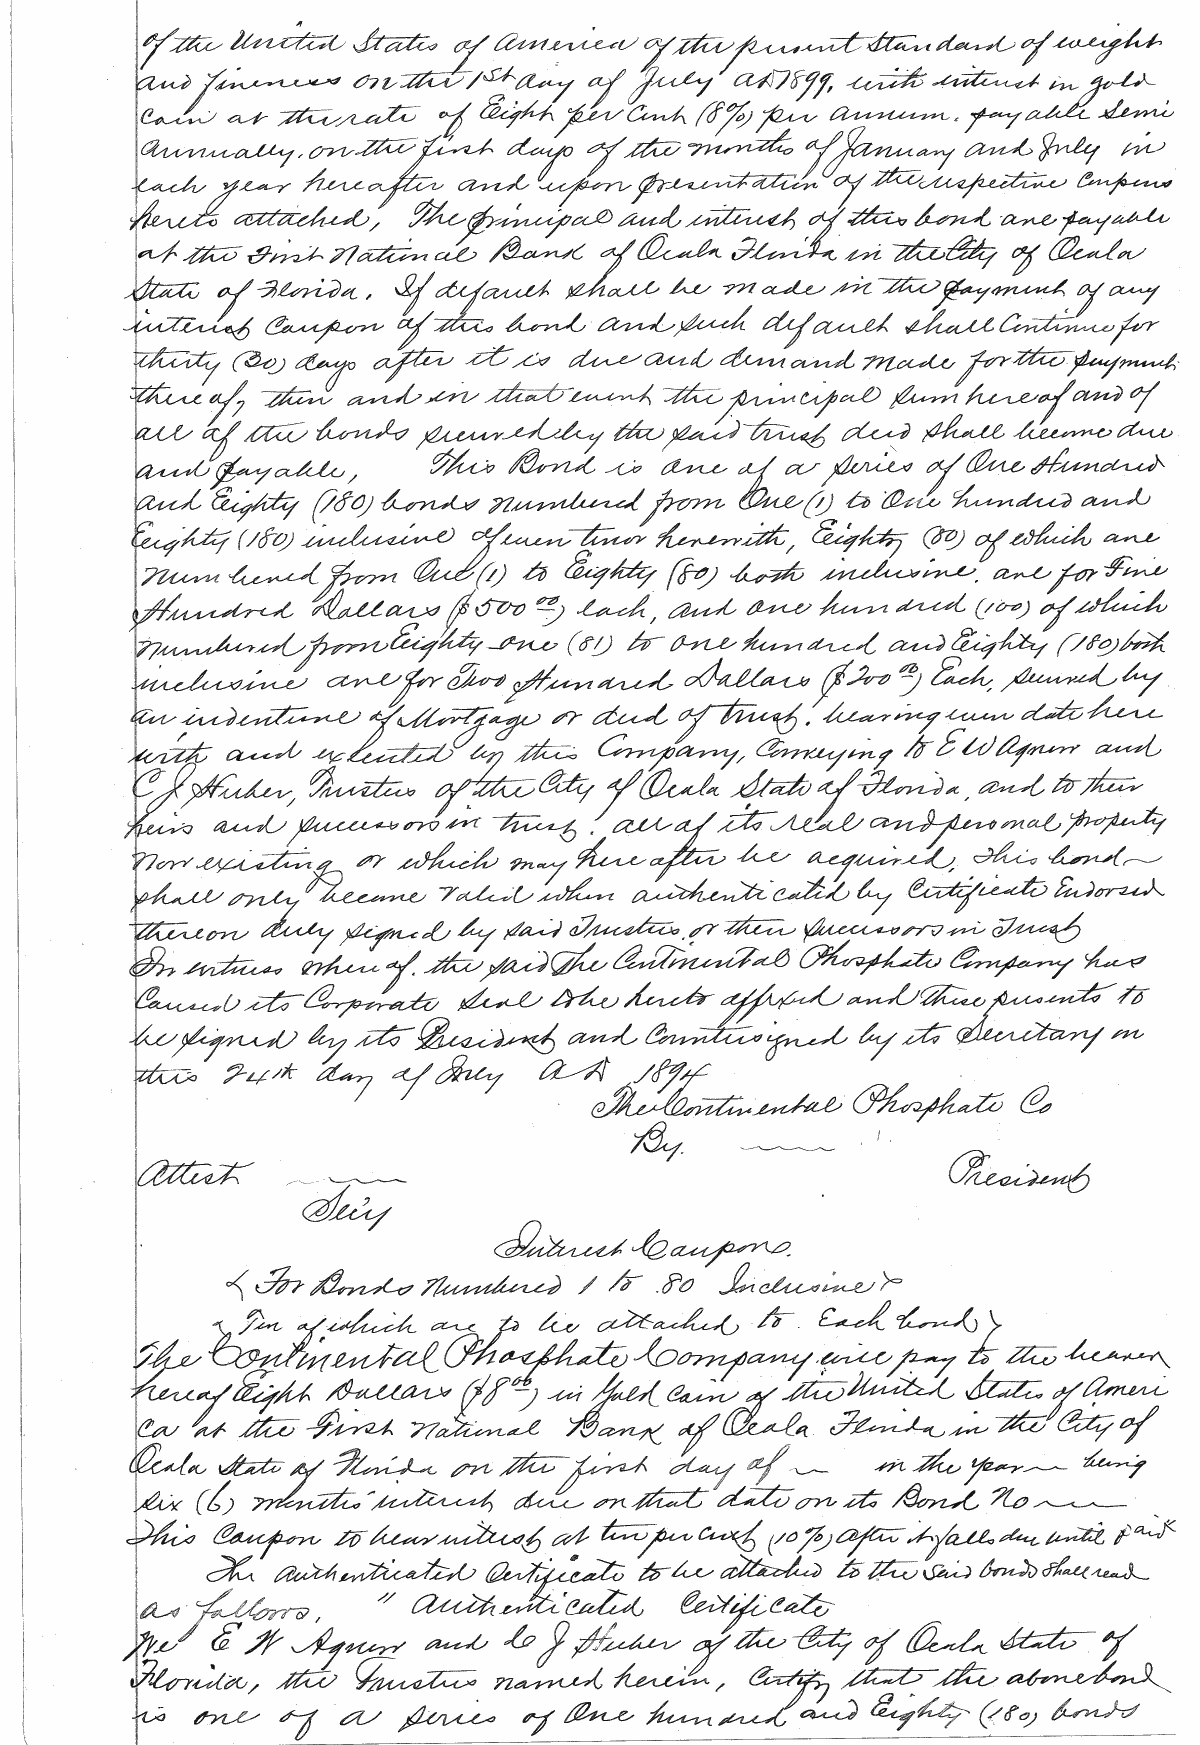 of the United States of America of the present Standard of weight
and fineness on the 1st day of July AD 1899, with interest in gold
coin at the rate of Eight per Cent (8%) per annum, payable Semi
Annually, on the first days of the months of January and July in
each year hereafter and upon presentation of the respective Coupons
hereto attached, The principal and interest of this bond are payable
at the First National Bank of Ocala Florida in the City of Ocala
State of Florida. If default shall be made in the payment of any
interest Coupon of this bond and such default shall Continue for
thirty (30) days after it is due and demand made for the payment
thereof, then and in that event the principal sum hereof and of
all of the bonds secured by the said trust deed shall become due
and payable, This Bond is one of a series of One Hundred
and Eighty (180) bonds numbered from One (1) to One hundred and
Eighty (180) inclusive of even tenor herewith, Eighty (80) of which are
Numbered from One (1) to Eighty (80) both inclusive, are for Five
Hundred Dollars ($500 00) each, and one hundred (100) of which
numbered from Eighty one (81) to one hundred and Eighty (180) both
inclusive are for Two Hundred Dollars ($200 00) Each, secured by
an indenture of Mortgage or deed of trust, bearing even date here
with and executed by this Company, Conveying to E W Agnew and
C J Huber, Trustees of the City of Ocala State of Florida, and to their
heirs and successors in trust, all of its real and personal property
now existing or which may here after be acquired, This bond
shall only become valid when authenticated by Certificate Endorsed
thereon duly signed by said Trustees, or their successors in Trust
In witness whereof, the said The Continental Phosphate Company has
Caused its Corporate Seal to be hereto affixed and these presents to
be signed by its President and Countersigned by its Secretary on
this 24th day of July A D 1894
The Continental Phosphate Co
By.
Attest President
Sec'y
Interest Coupon.
For Bonds Numbered 1 to 80 Inclusive
Ten of which are to be attached to Each bond
The Continental Phosphate Company will pay to the bearer
hereof Eight Dollars ($8 00) in Gold Coin of the United States of Ameri
ca at the First National Bank of Ocala Florida in the City of
Ocala State of Florida on the first day of — in the year — being
six (6) months' interest due on that date on its Bond No —
This Coupon to bear interest at ten per cent (10%) after it falls due until paid
The Authenticated Certificate to be attached to the said bonds shall read
as follows, " Authenticated Certificate
We E W Agnew and C J Huber of the City of Ocala State of
Florida, the Trustees named herein, Certify that the above bond
is one of a series of One hundred and Eighty (180) bonds